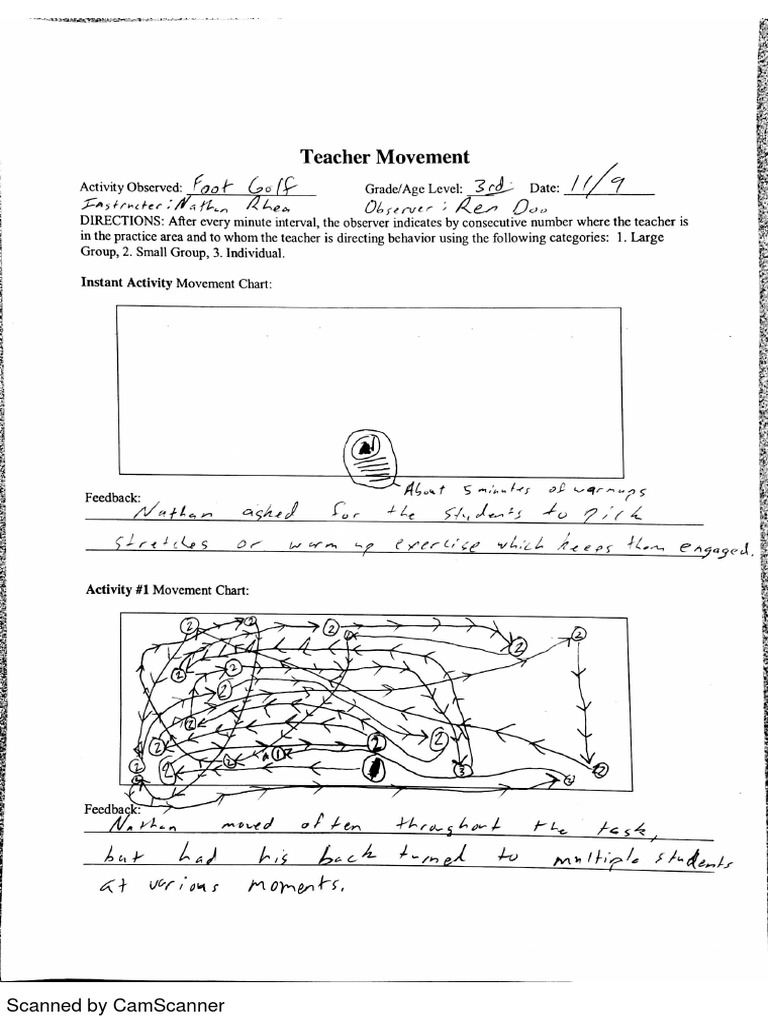 Teacher Movement
Activity Observed: Foot Golf Grade/Age Level: 3rd Date: 11/9
Instructor: Nathan Rhea Observer: Ren Doo
DIRECTIONS: After every minute interval, the observer indicates by consecutive number where the teacher is
in the practice area and to whom the teacher is directing behavior using the following categories: 1. Large
Group, 2. Small Group, 3. Individual.
Instant Activity Movement Chart:
About 5 minutes of warmups
Feedback:
Nathan asked for the students to pick
stretches or warm up exercise which keeps them engaged.
Activity #1 Movement Chart:
2 2 2 2 2
2 2
2
2
2 2 2
2 1
2 2 2 3 2
Feedback:
Nathan moved often throughout the task,
but had his back turned to multiple students
at various moments.
Scanned by CamScanner